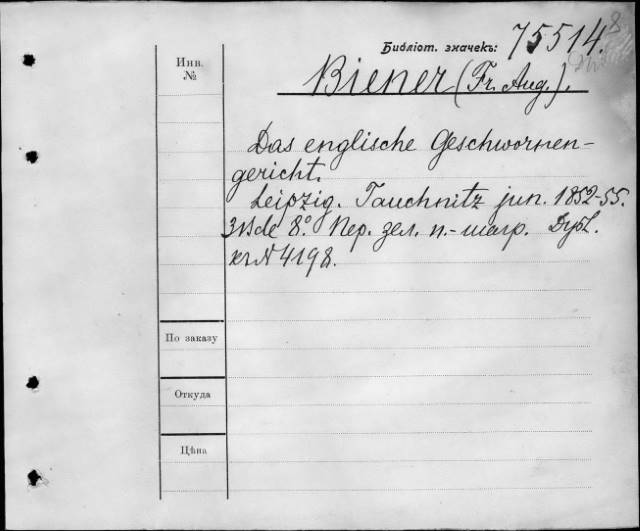 Библіот. значекъ: 75514.
Инв.
№
Biener (Fr. Aug.).
Das englische Geschwornen-
gericht.
Leipzig. Tauchnitz jun. 1852-55.
3 Bde 8.° Пер. зел. п.-шагр. Дубл.
къ № 4198.
По заказу
Откуда
Цѣна